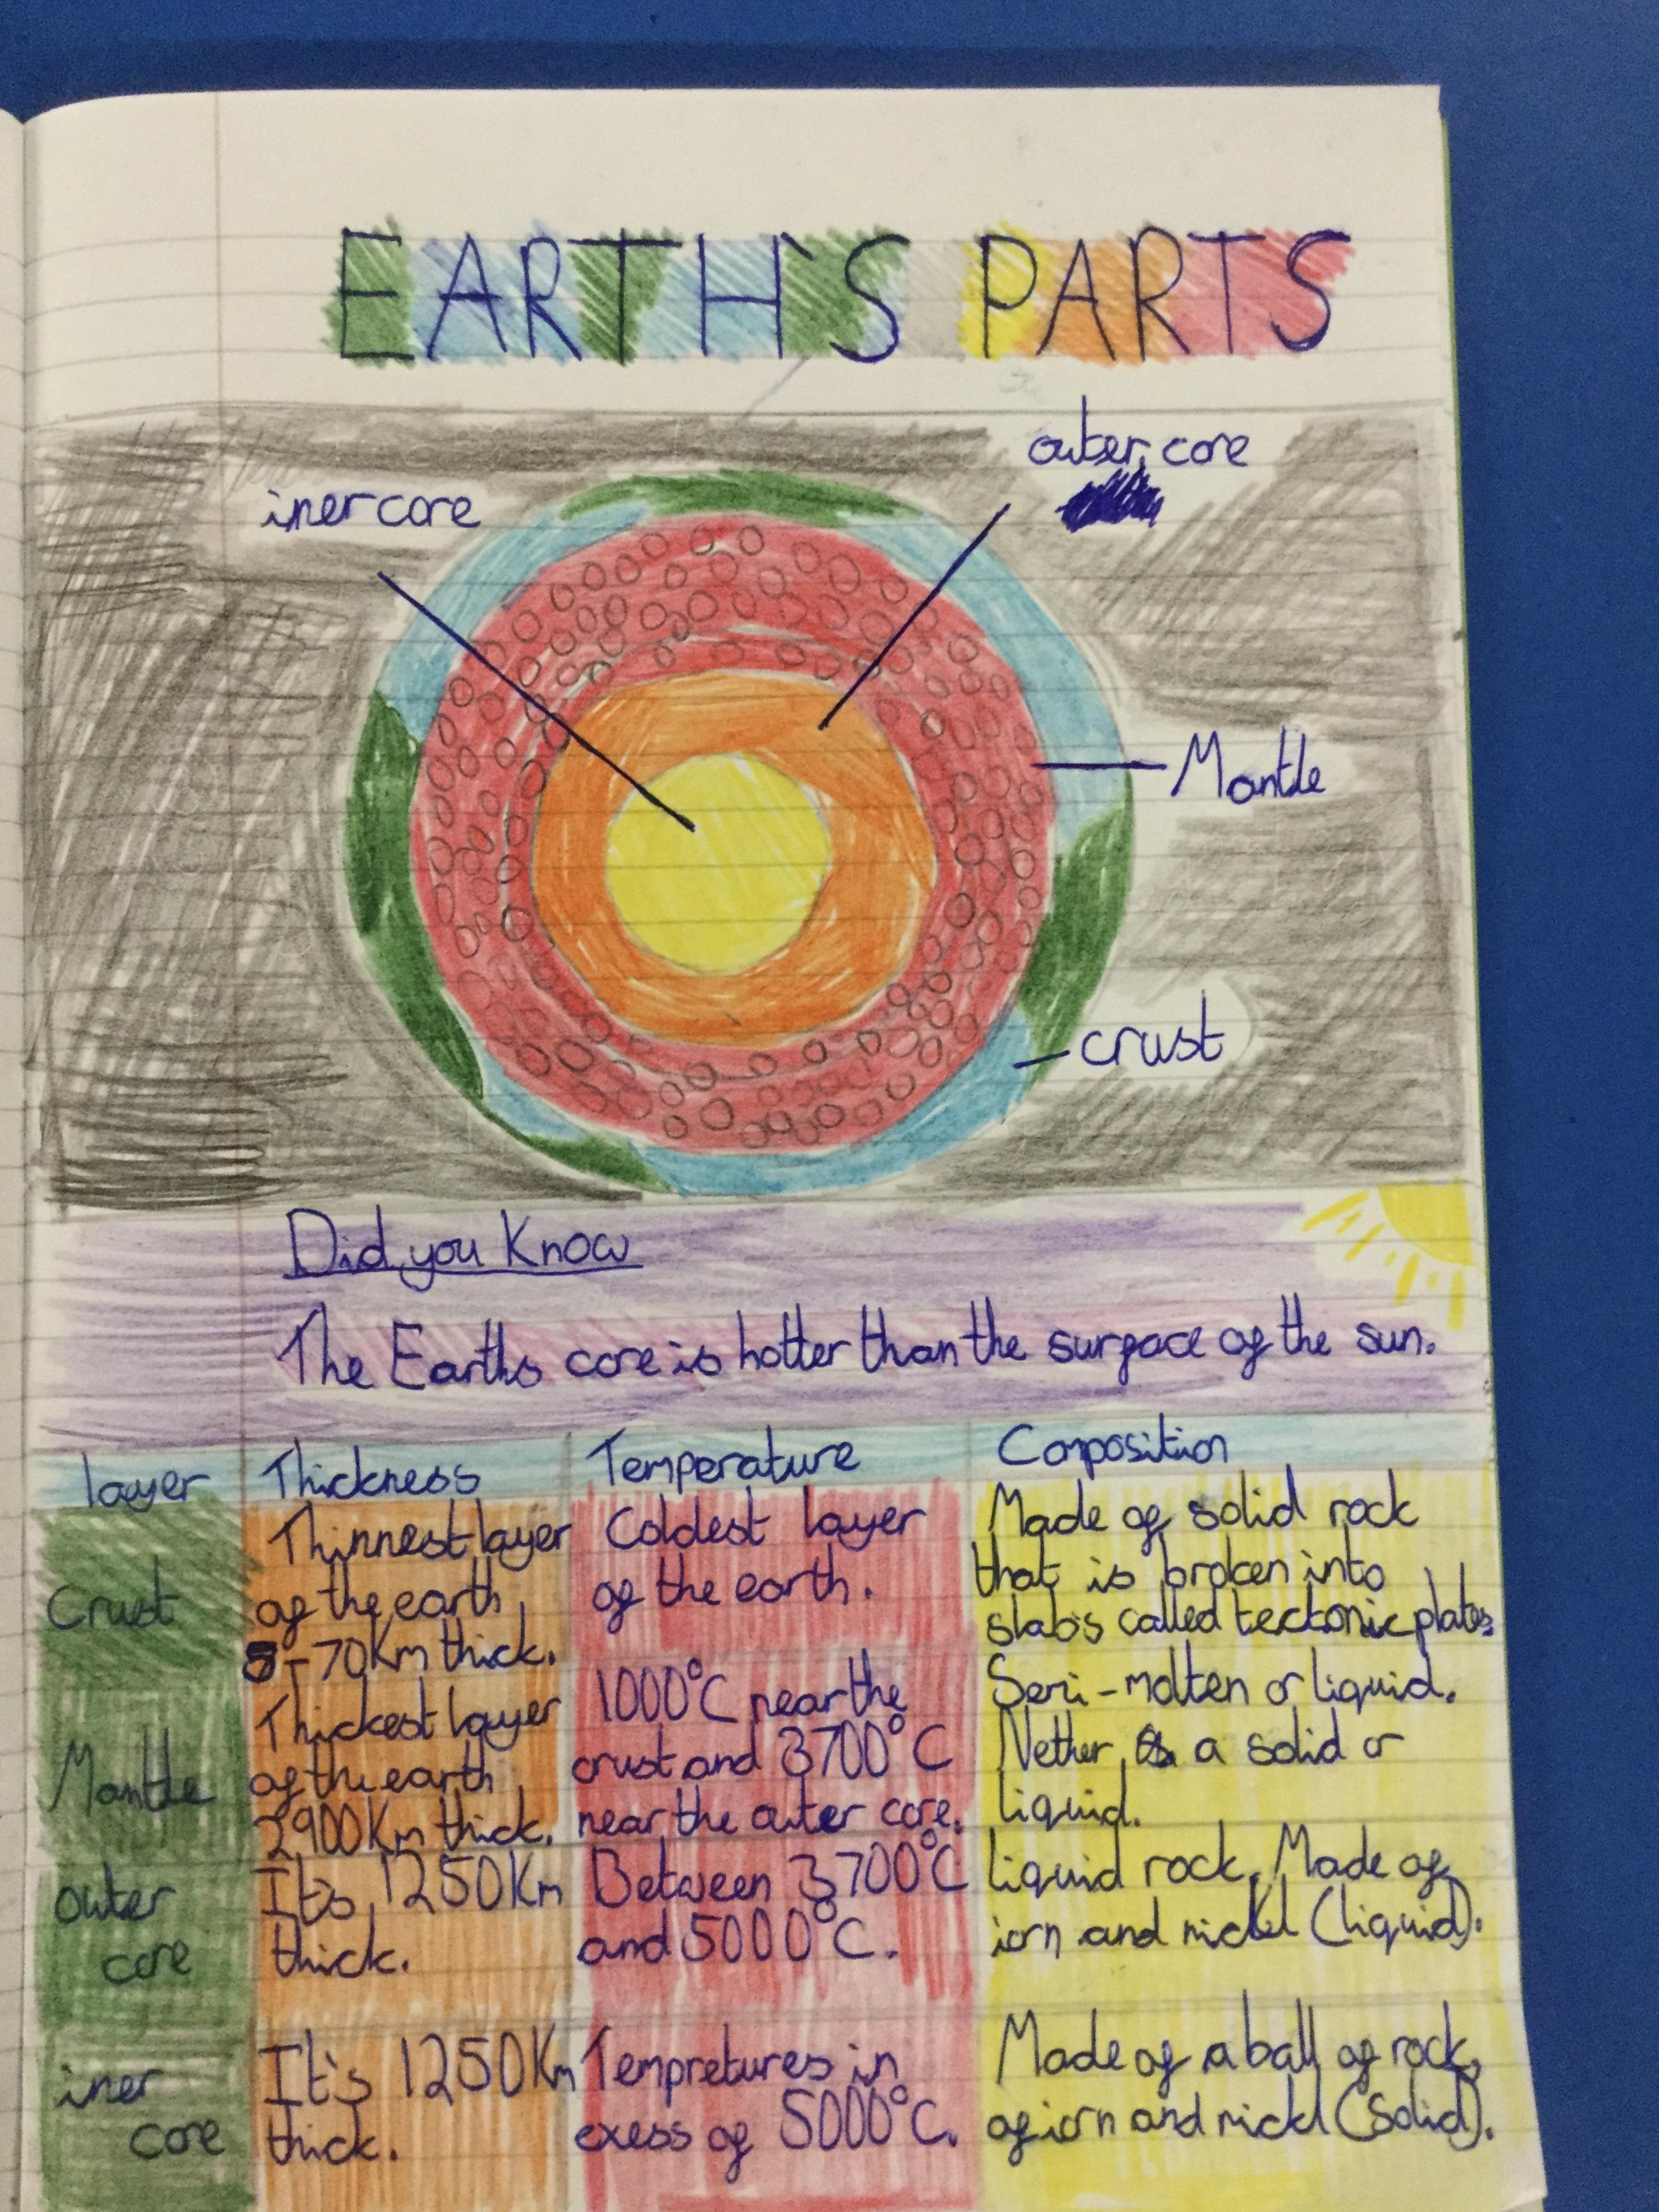 EARTH'S PARTS
outer core
iner core
Mantle
crust
Did you Know
The Earths core is hotter than the surface of the sun.
layer Thickness Temperature Composition
Crust
Thinnest layer
of the earth
5-70Km thick.
Coldest layer
of the earth.
Made of solid rock
that is broken into
slabs called tectonic plates
Mantle
Thickest layer
of the earth
2900Km thick.
1000°C near the
crust and 3700°C
near the outer core.
Semi-molten or liquid.
Nether a solid or
liquid.
outer
core
It's 1250Km
thick.
Between 3700°C
and 5000°C.
liquid rock. Made of
iorn and nickel (liquid).
iner
core
It's 1250Km
thick.
Tempretures in
exess of 5000°C.
Made of a ball of rock,
of iorn and nickl (Solid).